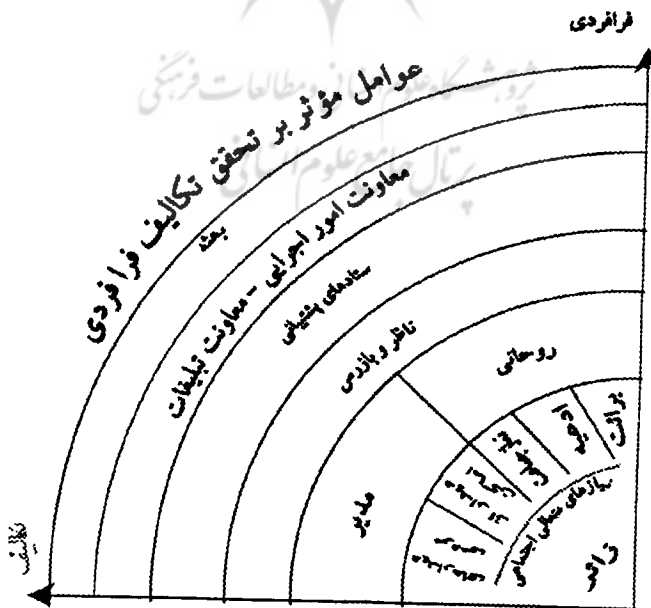 فرافردی
پژوهشگاه علوم انسانی و مطالعات فرهنگی
پرتال جامع علوم انسانی
عوامل مؤثر بر تحقق تکالیف فرافردی
بعثه
معاونت امور اجرایی - معاونت تبلیغات
ستادهای پشتیبانی
ناظر و بازرس
روحانی
مدیر
برائت
ادعیه
نیازهای متعالی اجتماعی
زائر
تکالیف